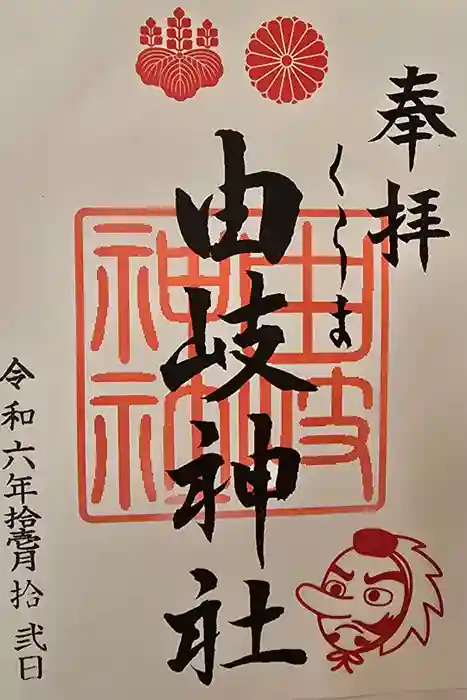 奉拝
くらま
由岐神社
由岐神社
令和六年拾壱月拾弐日